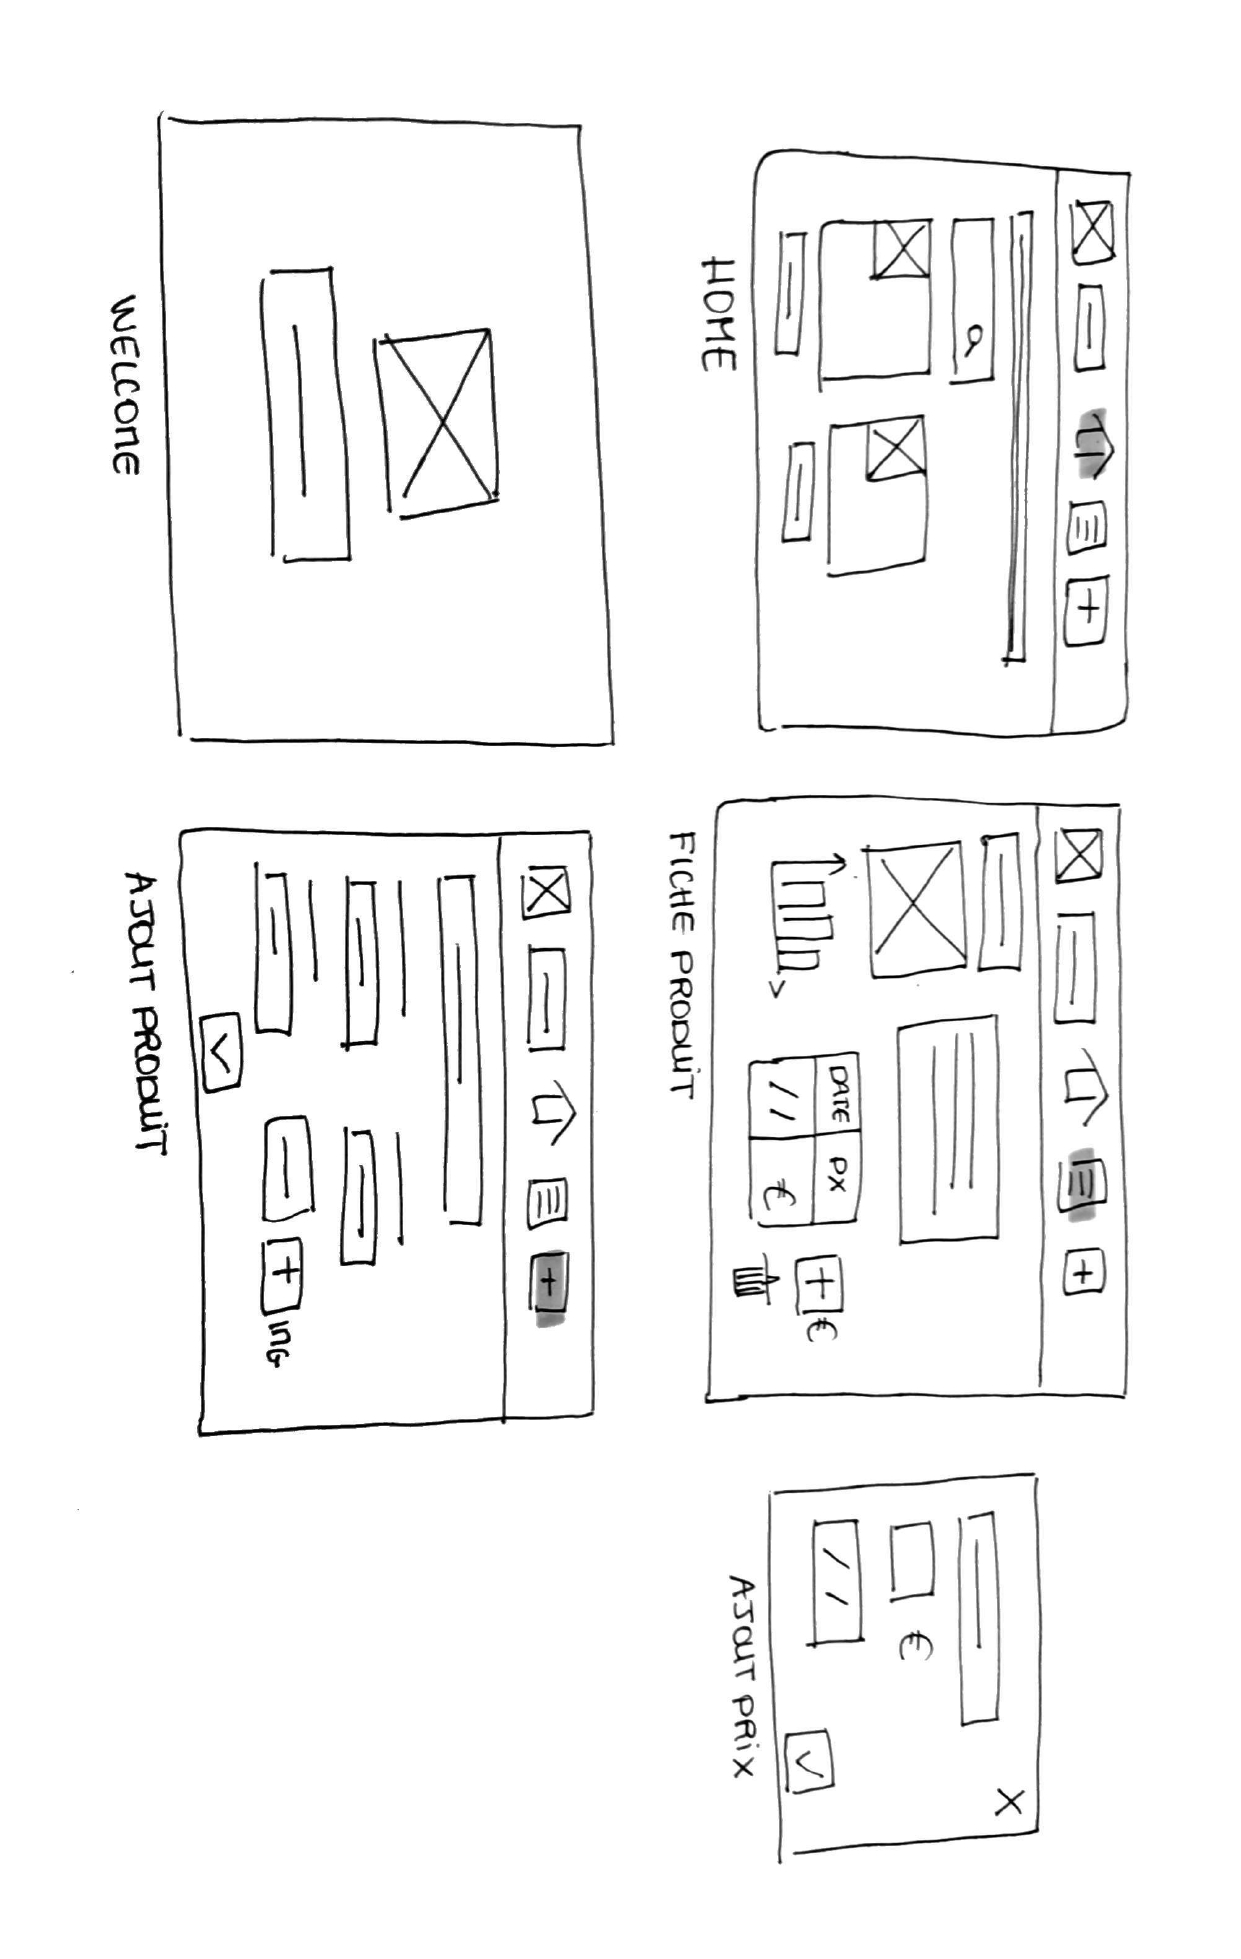 HOME
DATE PX
/ / €
+ €
FICHE PRODUIT
X
€
/ /
AJOUT PRIX
WELCOME
+ ING
AJOUT PRODUIT